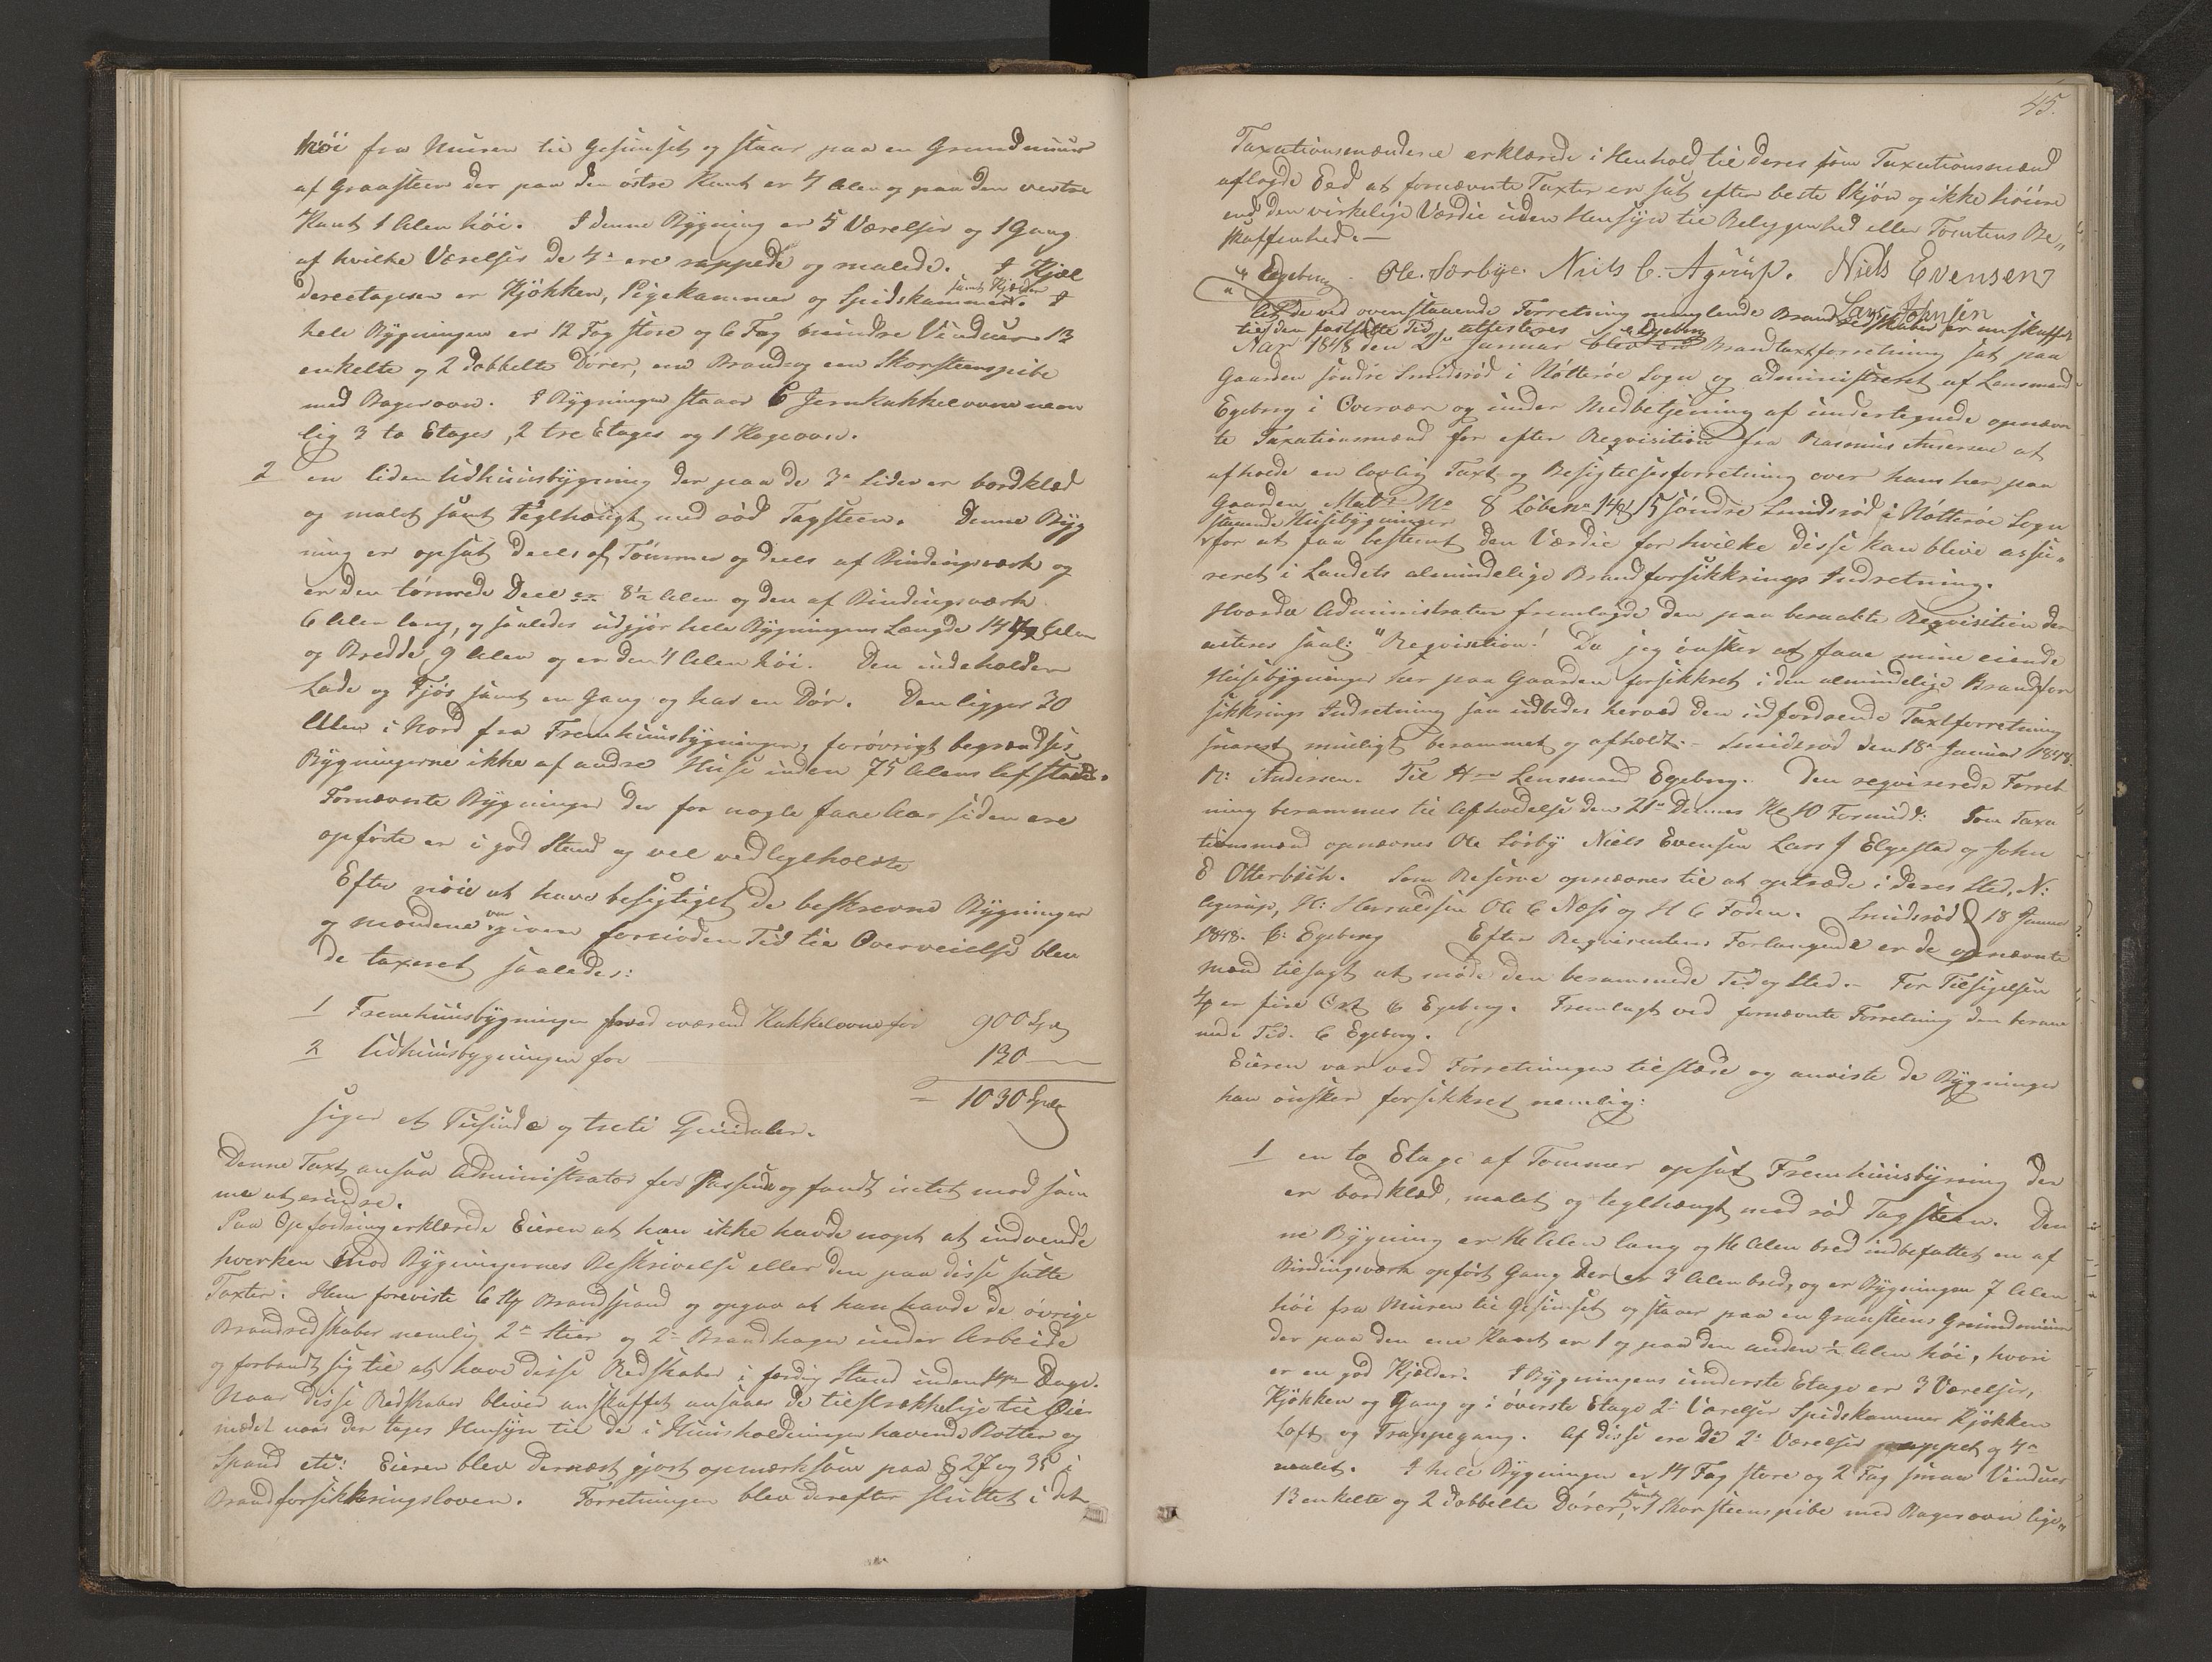 höi fra Muren til Gesimset og staar paa en Grundmuur
af Graasteen der paa den östre Kant er 4 Alen og paa den vestre
Kant 1 Alen höi. I denne Bygning er 5 Værelser og 1 Gang
af hvilke Værelser de 4 ere rappede og malede. I Kjæl
deretagen er Kjökken, Pigekammer og Spidskammer samt Kjelder. I
hele Bygningen er 12 Fag store og 6 Fag mindre Vinduer 13
enkelte og 2 dobbelte Dörer, en Brandfag en Skorsteenspibe
med Bagerovn. I Bygningen staaer 6 Jernkakkelovne nem
lig 3 to Etages, 2 tre Etages og 1 Kogeovn.
2 en liden Udhuusbygning der paa de 3 Sider er bordklæd
og malet samt teglhængt med röd Tagsteen. Denne Byg
ning er opsat deels af Tömmer og deels af Bindingsværk og
er den tömrede Deel er 8½ Alen og den af Bindingsværk
6 Alen lang, og saaledes udgjör hele Bygningens Længde 14½ Alen
og Bredde 9 Alen og er den 4 Alen höi. Den indeholder
Lade og Fjös samt en Gang og har en Dör. Den ligger 30
Alen i Nord fra Fremhuusbygningen, foróvrigt begrændses
Bygningerne ikke af andre Huse inden 75 Alens Afstand.
Fornævnte Bygninger der for nogle faae Aar siden ere
opförte er i god Stand og vel vedligeholdte
Efter nöie at have besigtiget de beskrevne Bygninger
og Mændene var given fornöden Tid til Overveielse blev
de taxeret saaledes:
1 Fremhuusbygningen med værend Kakkelovne for 900 Spd
2 Udhuusbygningen for 130
= 1030 Spd
siger et Tusinde og treti Speciedaler.
Denne Taxt ansaa Administrator for Passende og fandt intet mod sam
me at erindre.
Paa Opfordring erklærede Eieren at han ikke havde noget at indvende
hverken mod Bygningernes Beskrivelse eller den paa disse satte
Taxter. Han foreviste 6 Stk Brandspand og opgav at han havde de övrige
Brandredskaber nemlig 2 Stier og 2 Brandhager under Arbeide
og forbandt sig til at have disse Redskaber i færdig Stand inden Dage.
Naar disse Redskaber bliver anskaffet ansaaes de tilstrækkelige til Öie
medet naar der tages Hensyn til de i Huusholdningen havende Bötter og
Spand etc: Eieren blev dernæst gjort opmærksom paa § 27 og 35 i
Brandforsikkringsloven. Forretningen blev derefter sluttet i det
45.
Taxationsmændene erklærede i Henhold til deres som Taxationsmænd
aflagde Eed at fornævnte Taxter er sat efter beste Skjön og ikke höiere
end den virkelige Værdie uden Hensyn til Beliggenhed eller Tomtens Be„
skaffenhed.—
C Egeberg Ole Sörbye. Niels C. Agerup. Niels Evensen
Lars Johnsen
at de ved ovenstaaende Forretning manglende Brandredskaber er anskaffet
til den fastsatte Tid attesteres C Egeberg
Aar 1848 den 21 Januar blev en Brandtaxtforretning sat paa
Gaarden söndre Smidsröd i Nötteröe Sogn og administreret af Lensmand
Egeberg i Overvær og under Medbetjening af undertegnede opnævn
te Taxationsmænd for efter Reqvisition fra Rasmus Andersen at
afholde en lovlig Taxt og Besigtelsesforretning over hans her paa
Gaarden Mat: No 8 Löbe No 14 & 15 söndre Smidsröd i Nötteröe Sogn
staaende Husebygninger
for at faa bestemt den Værdie for hvilke disse kan blive assu„
reret i Landets almindelige Brandforsikkrings Indretning.
Hvorda Administrator fremlagde den paa berammede Reqvisition der
acteres saal: "Reqvisition! Da jeg önsker at faae mine eiende
Husebygninger her paa Gaarden forsikkret i den almindelige Brandfor
sikkrings Indretning saa udbedes herved den udfordrende Taxtforretning
snarest muligt berammet og afholdt. Smidsrod den 18 Januar 1848.
R: Andersen. Til Hr Lensmand Egeberg. Den reqvirerede Forret
ning berammes til Afholdelse den 21 Dennes Kl 10 Formidd: Som Taxa
tionsmænd opnævnes Ole Sörby Niels Evensen Lars J Elgestad og John
E Otterbæk. Som Reserve opnævnes til at optræde i deres Sted, N:
Agerup, H: Haraldssen Ole C Næss og H C Foden. Smidsröd 18 Januar
1848. C: Egeberg Efter Reqvirentens Forlangende er de opnævnte
Mænd tilsagt at möde den berammede Tid og Sted. For Tilsigelsen
4 er fire Ort C Egeberg. Fremlagt ved fornævnte Forretning den beram
mede Tid. C Egeberg.
Eieren var ved Forretningen tilstæde og anviste de Bygninger
han önsker forsikkret nemlig:
1 en to Etage af Tömmer opsat Fremhuusbygning der
er bordklæd, malet og teglhængt med röd Tagsteen. Den
ne Bygning er Alen lang og Alen bred indbefattet en af
Bindingsværk opfört Gang der er 3 Alen bred, og er Bygningen 7 Alen
höi fra Muren til Gesimset og staaer paa en Graasteens Grundmuur
der paa den ene Kant er 1 og paa den anden ½ Alen höi, hvori
er en god Kjelder. I Bygningens underste Etage er 3 Værelser,
Kjökken og Gang og i överste Etage 2 Værelser Spidskammer Kjökken
Loft og Trappegang. Af disse ere de 2 Værelser rappet og 4
malet. I hele Bygningen er 14 Fag store og 2 Fag smaa Vinduer
13 enkelte og 2 dobbelte Dörer, samt 1 Skorsteenspibe med Bagerovn lige„